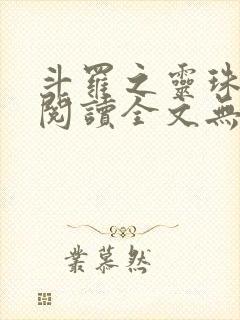 斗羅之靈珠
閱讀全文無
業慕然